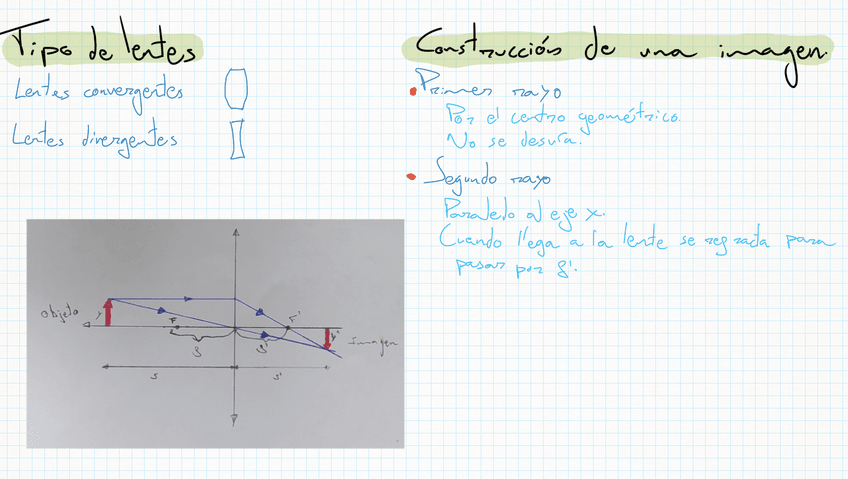 Tipo de lentes
Lentes convergentes
Lentes divergentes
Construcción de una imagen
Primer rayo
Por el centro geométrico.
No se desvía.
Segundo rayo
Paralelo al eje x.
Cuando llega a la lente se refracta para
pasar por f'.
Objeto
y
F
F'
y'
Imagen
f
f'
s
s'